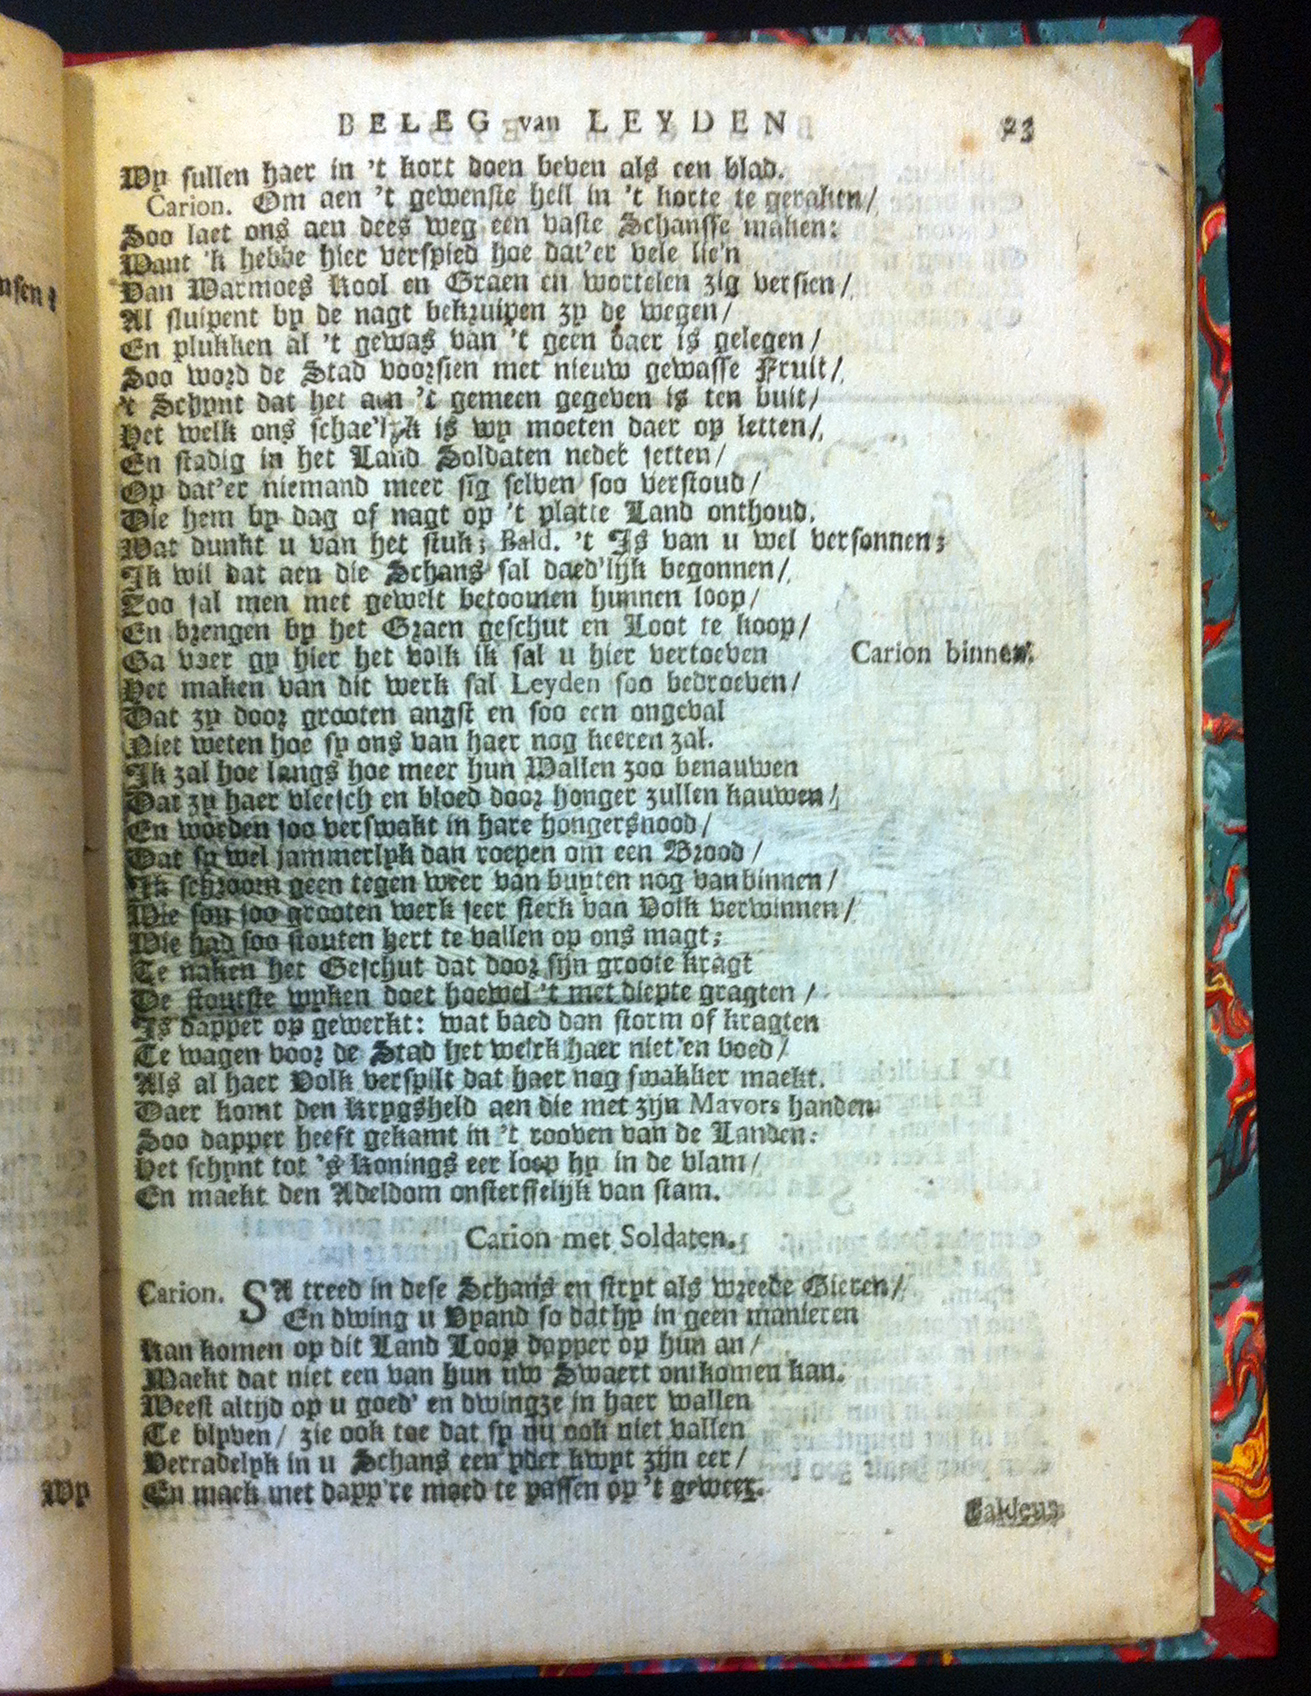 BELEG van LEYDEN 23
Wy sullen haer in 't kort doen beven als een blad.
Carion. Om aen 't gewenste heil in 't korte te geraken/
Soo laet ons aen dees weg een vaste Schansse maken:
Want 'k hebbe hier verspied hoe dat'er vele lie'n
Van Warmoes Kool en Graen en wortelen zig versien/
Al sluipent by de nagt bekruipen zy de wegen/
En plukken al 't gewas van 't geen daer is gelegen/
Soo word de Stad voorsien met nieuw gewasse Fruit/
't Schynt dat het aan 't gemeen gegeven is ten buit/
Het welk ons schae'lyk is wy moeten daer op letten/
En stadig in het Land Soldaten neder setten/
Op dat'er niemand meer sig selven soo verstoud/
Die hem by dag of nagt op 't platte Land onthoud.
Wat dunkt u van het stuk; Bald. 't Is van u wel versonnen;
Ik wil dat aen die Schans sal daed'lijk begonnen/
Soo sal men met gewelt betoomen hunnen loop/
En brengen by het Graen geschut en Loot te koop/
Ga vaer gy hier het volk ik sal u hier vertoeven Carion binnen.
Het maken van dit werk sal Leyden soo bedroeven/
Dat zy door grooten angst en soo een ongeval
Niet weten hoe sy ons van haer nog keeren zal.
Ik zal hoe langs hoe meer hun Wallen zoo benauwen
Dat zy haer vleesch en bloed door honger zullen kauwen/
En worden soo verswakt in hare hongersnood/
Dat sy wel jammerlyk dan roepen om een Brood/
Ik schroom geen tegen weer van buyten nog van binnen/
Wie sou soo grooten werk seer sterk van Volk verwinnen/
Wie had soo stouten hert te vallen op ons magt;
Te naken het Geschut dat door sijn groote kragt
De stoutste wyken doet hoewel 't met diepte gragten/
Is dapper op gewerkt: wat baed dan storm of kragten
Te wagen voor de Stad het welk haer niet en voed/
Als al haer Volk verspilt dat haer nog swakker maekt.
Daer komt den Krygsheld aen die met zijn Mavors handen
Soo dapper heeft gekamt in 't rooven van de Landen:
Het schynt tot 's Konings eer loop hy in de vlam/
En maekt den Adeldom onsterffelijk van stam.
Carion met Soldaten.
Carion. SA treed in dese Schans en stryt als wreede Gieren/
En dwing u Vyand so dat hy in geen manieren
Kan komen op dit Land Loop dapper op hun an/
Maekt dat niet een van hun uw Swaert ontkomen kan.
Weest altijd op u goed' en dwingze in haer wallen
Te blyven/ zie ook toe dat sy nu ook niet vallen
Verradelyk in u Schans een yder kwyt zijn eer/
En maek met dapp're moed te passen op 't geweer.
Baldeus
Wy